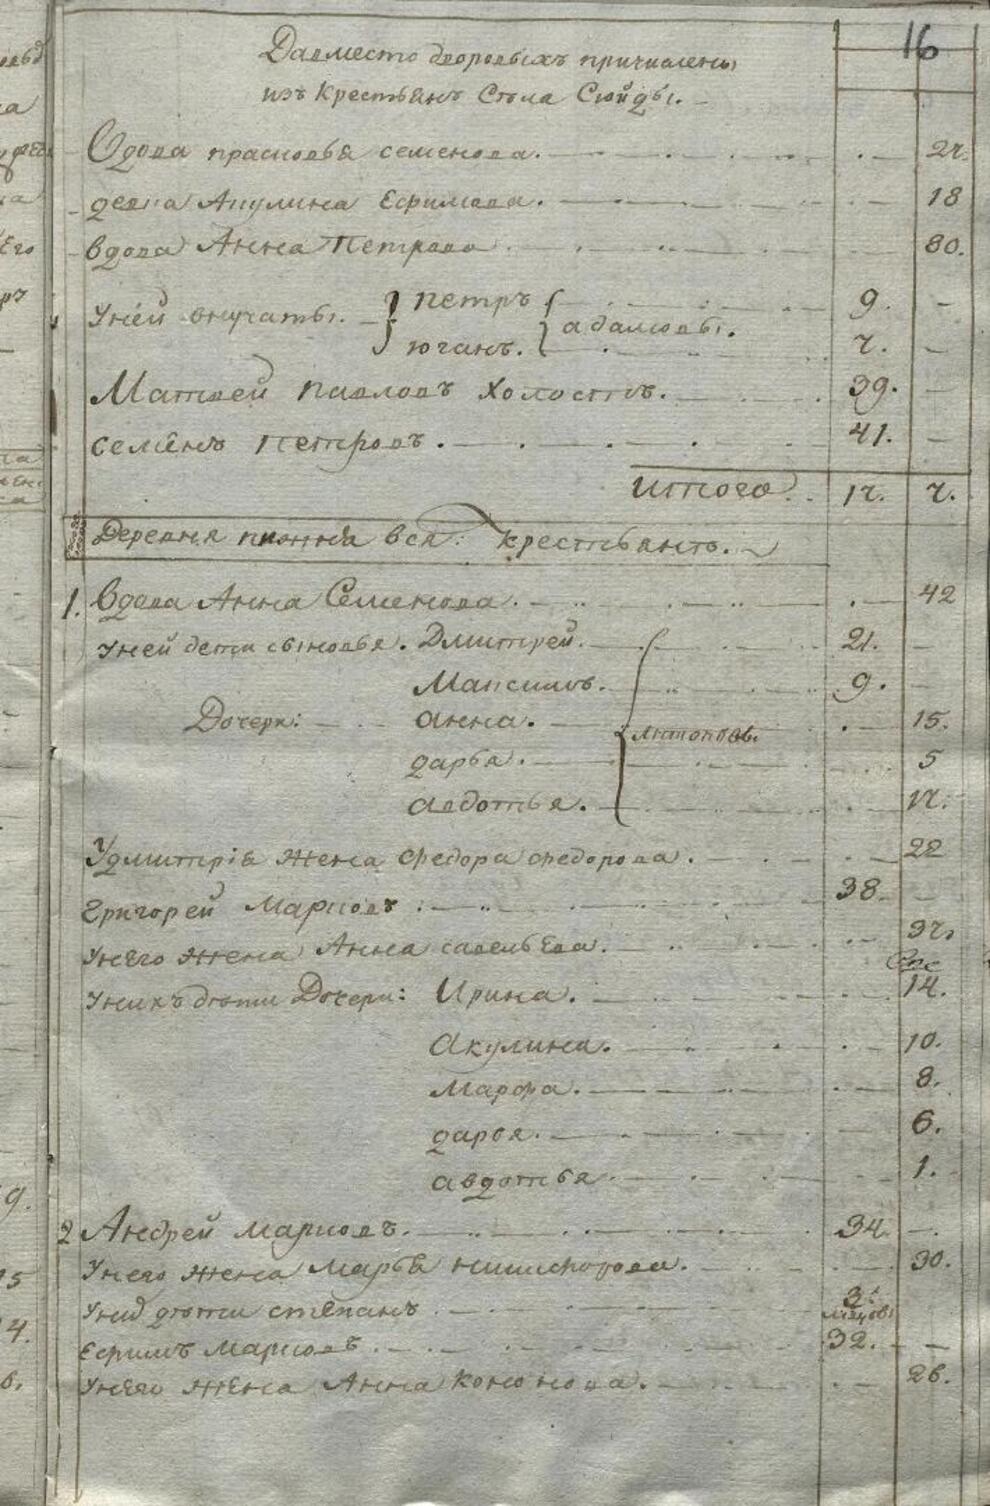 16
Давместо дворовыхъ причислены
изъ крестьянъ Села Сюйды.
Вдова прасковья семенова. 27.
девка Акулина Ефимова. 18
вдова Анна Петрова 80.
Унеи внучаты. петръ 9.
адамовы.
юганъ. 7.
Матвеи павловъ холостъ. 39.
семенъ петровъ. 41.
итого 17. 7.
Деревня пижня вся: крестьянъ.
1. Вдова Анна Семенова. 42
Уней дети сыновья. Дмитрей. 21.
Максимъ. 9.
Дочери: анна. 15.
дарья. 5
авдотья. 17.
Удмитрія жена федора федорова. 22
Григореи Марковъ: 38
Унего жена Анна савельева. 37.
Унихъ дѣти Дочери: Ирина. 14.
Акулина. 10.
Марфа. 8.
дарья. 6.
авдотья. 1.
2 Андрей марковъ. 34.
Унего жена Марья никифорова. 30.
дѣти степанъ 3
Ефимъ марковъ 32.
Унего жена Анна кононова. 26.